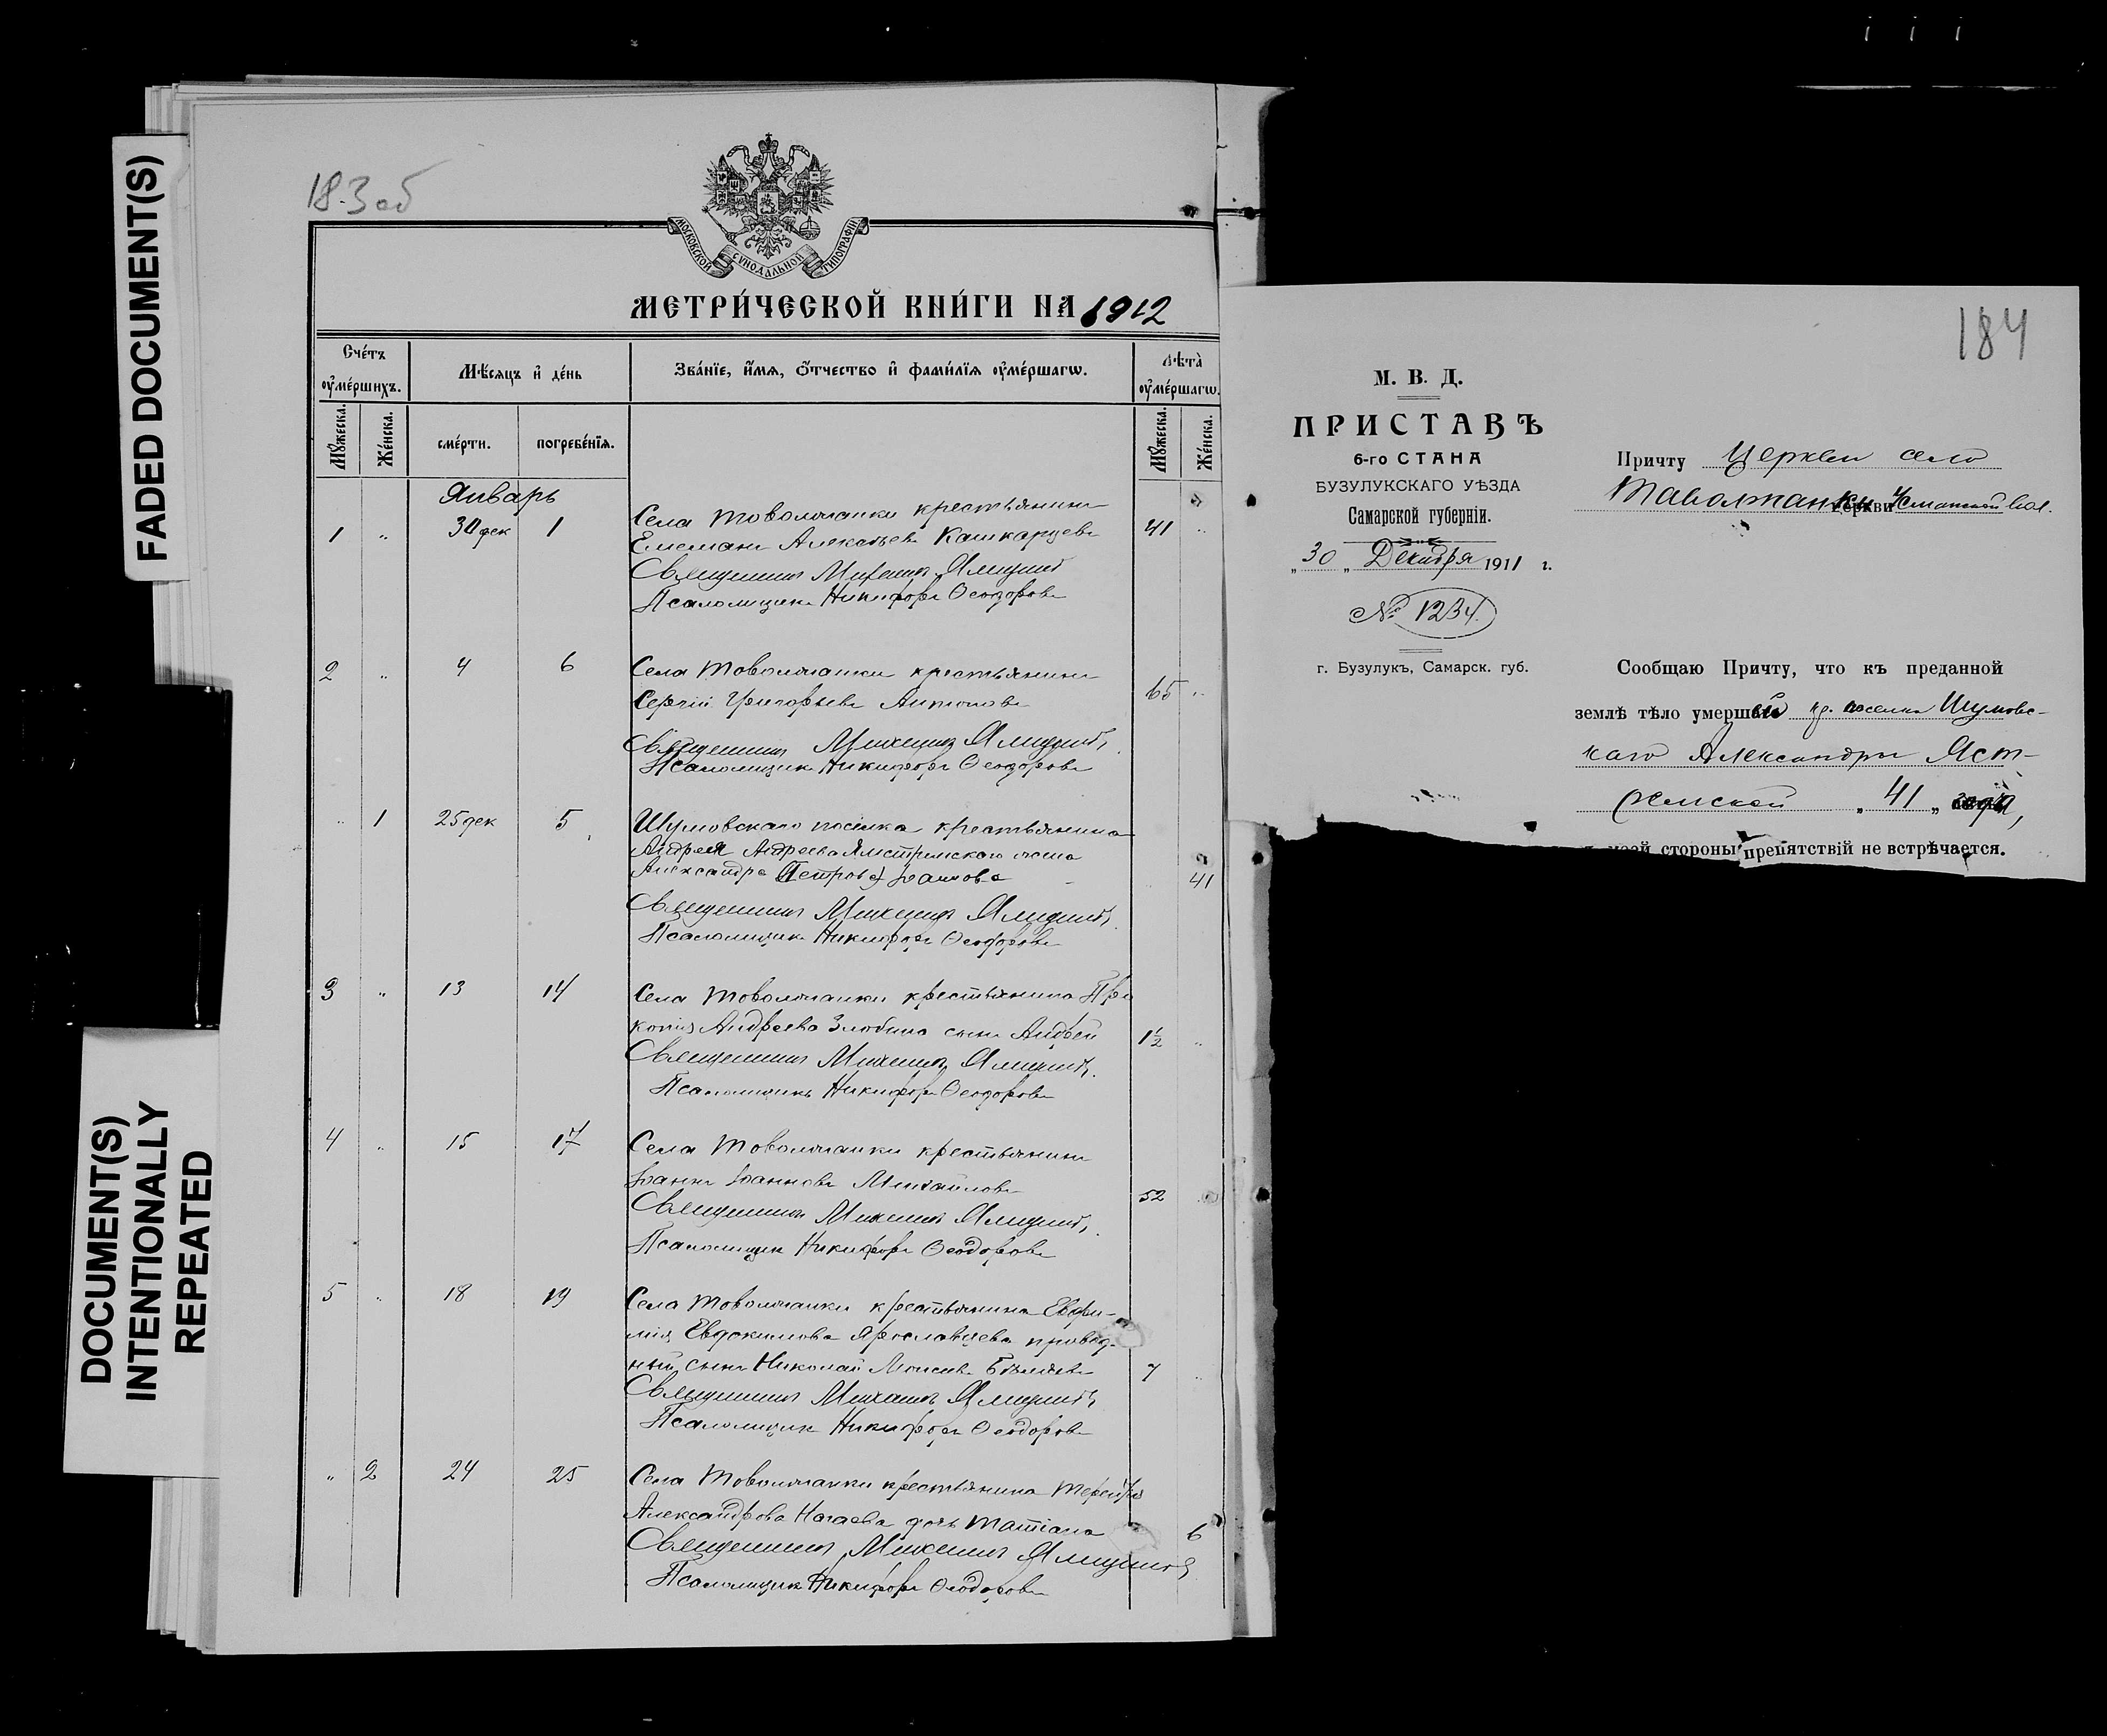 FADED DOCUMENT(S)
DOCUMENT(S)
INTENTIONALLY
REPEATED
183 об
МОСКОВСКОЙ СѴНОДАЛЬНОЙ ТИПОГРАФІИ
МЕТРИ́ЧЕСКОЙ КНИ́ГИ НА 1912
Сче́тъ оу҆ме́ршихъ.
Мѣ́сяцъ и҆ де́нь
Зва́нїе, и҆́мѧ, ѻ҆́тчество и҆ фами́лїѧ оу҆ме́ршагѡ.
Лѣта̀ оу҆ме́ршагѡ.
Мꙋ́жеска.
Же́нска.
сме́рти.
погребе́нїѧ.
Мꙋ́жеска.
Же́нска.
Январь
1 " 30 дек 1 Села Товолжанки крестьянинъ 41 "
Емельянъ Алексѣевъ Кашкарцевъ
Священникъ Михаилъ
Псаломщикъ Никифоръ Ѳеодоровъ
2 " 4 6 Села Товолжанки крестьянинъ
Сергій Григорьевъ Антоновъ 65 "
Священникъ Михаилъ
Псаломщикъ Никифоръ Ѳеодоровъ
" 1 25 дек 5 Шумовскаго поселка крестьянина
Андрея Андреева Ямстремскаго жена
Александра (Петрова) Іоаннова 41
Священникъ Михаилъ
Псаломщикъ Никифоръ Ѳеодоровъ
3 " 13 14 Села Товолжанки крестьянина Про
копія Андреева Злобина сынъ Андрей 1½ "
Священникъ Михаилъ
Псаломщикъ Никифоръ Ѳеодоровъ
4 " 15 17 Села Товолжанки крестьянинъ
Іоаннъ Іоанновъ Михайловъ 52
Священникъ Михаилъ
Псаломщикъ Никифоръ Ѳеодоровъ
5 " 18 19 Села Товолжанки крестьянина Евфи-
мія Евдокимова Ярославцева
сынъ Николай Моисеевъ Бѣляевъ 7 "
Священникъ Михаилъ
Псаломщикъ Никифоръ Ѳеодоровъ
" 2 24 25 Села Товолжанки крестьянина
Александрова Нагаева дочь Татіана 6
Священникъ Михаилъ
Псаломщикъ Никифоръ Ѳеодоровъ
184
М. В. Д.
ПРИСТАВЪ
6-го СТАНА
БУЗУЛУКСКАГО УѢЗДА
Самарской губерніи.
„30„ Декабря 1911 г.
№ 1234.
г. Бузулукъ, Самарск. губ.
Причту Церкви село
Таволжанки церкви вол.
Сообщаю Причту, что къ преданной
землѣ тѣло умершей кр. поселка Шумовс-
каго Александры Яст-
ремской „ 41 „ года,
стороны препятствій не встрѣчается.